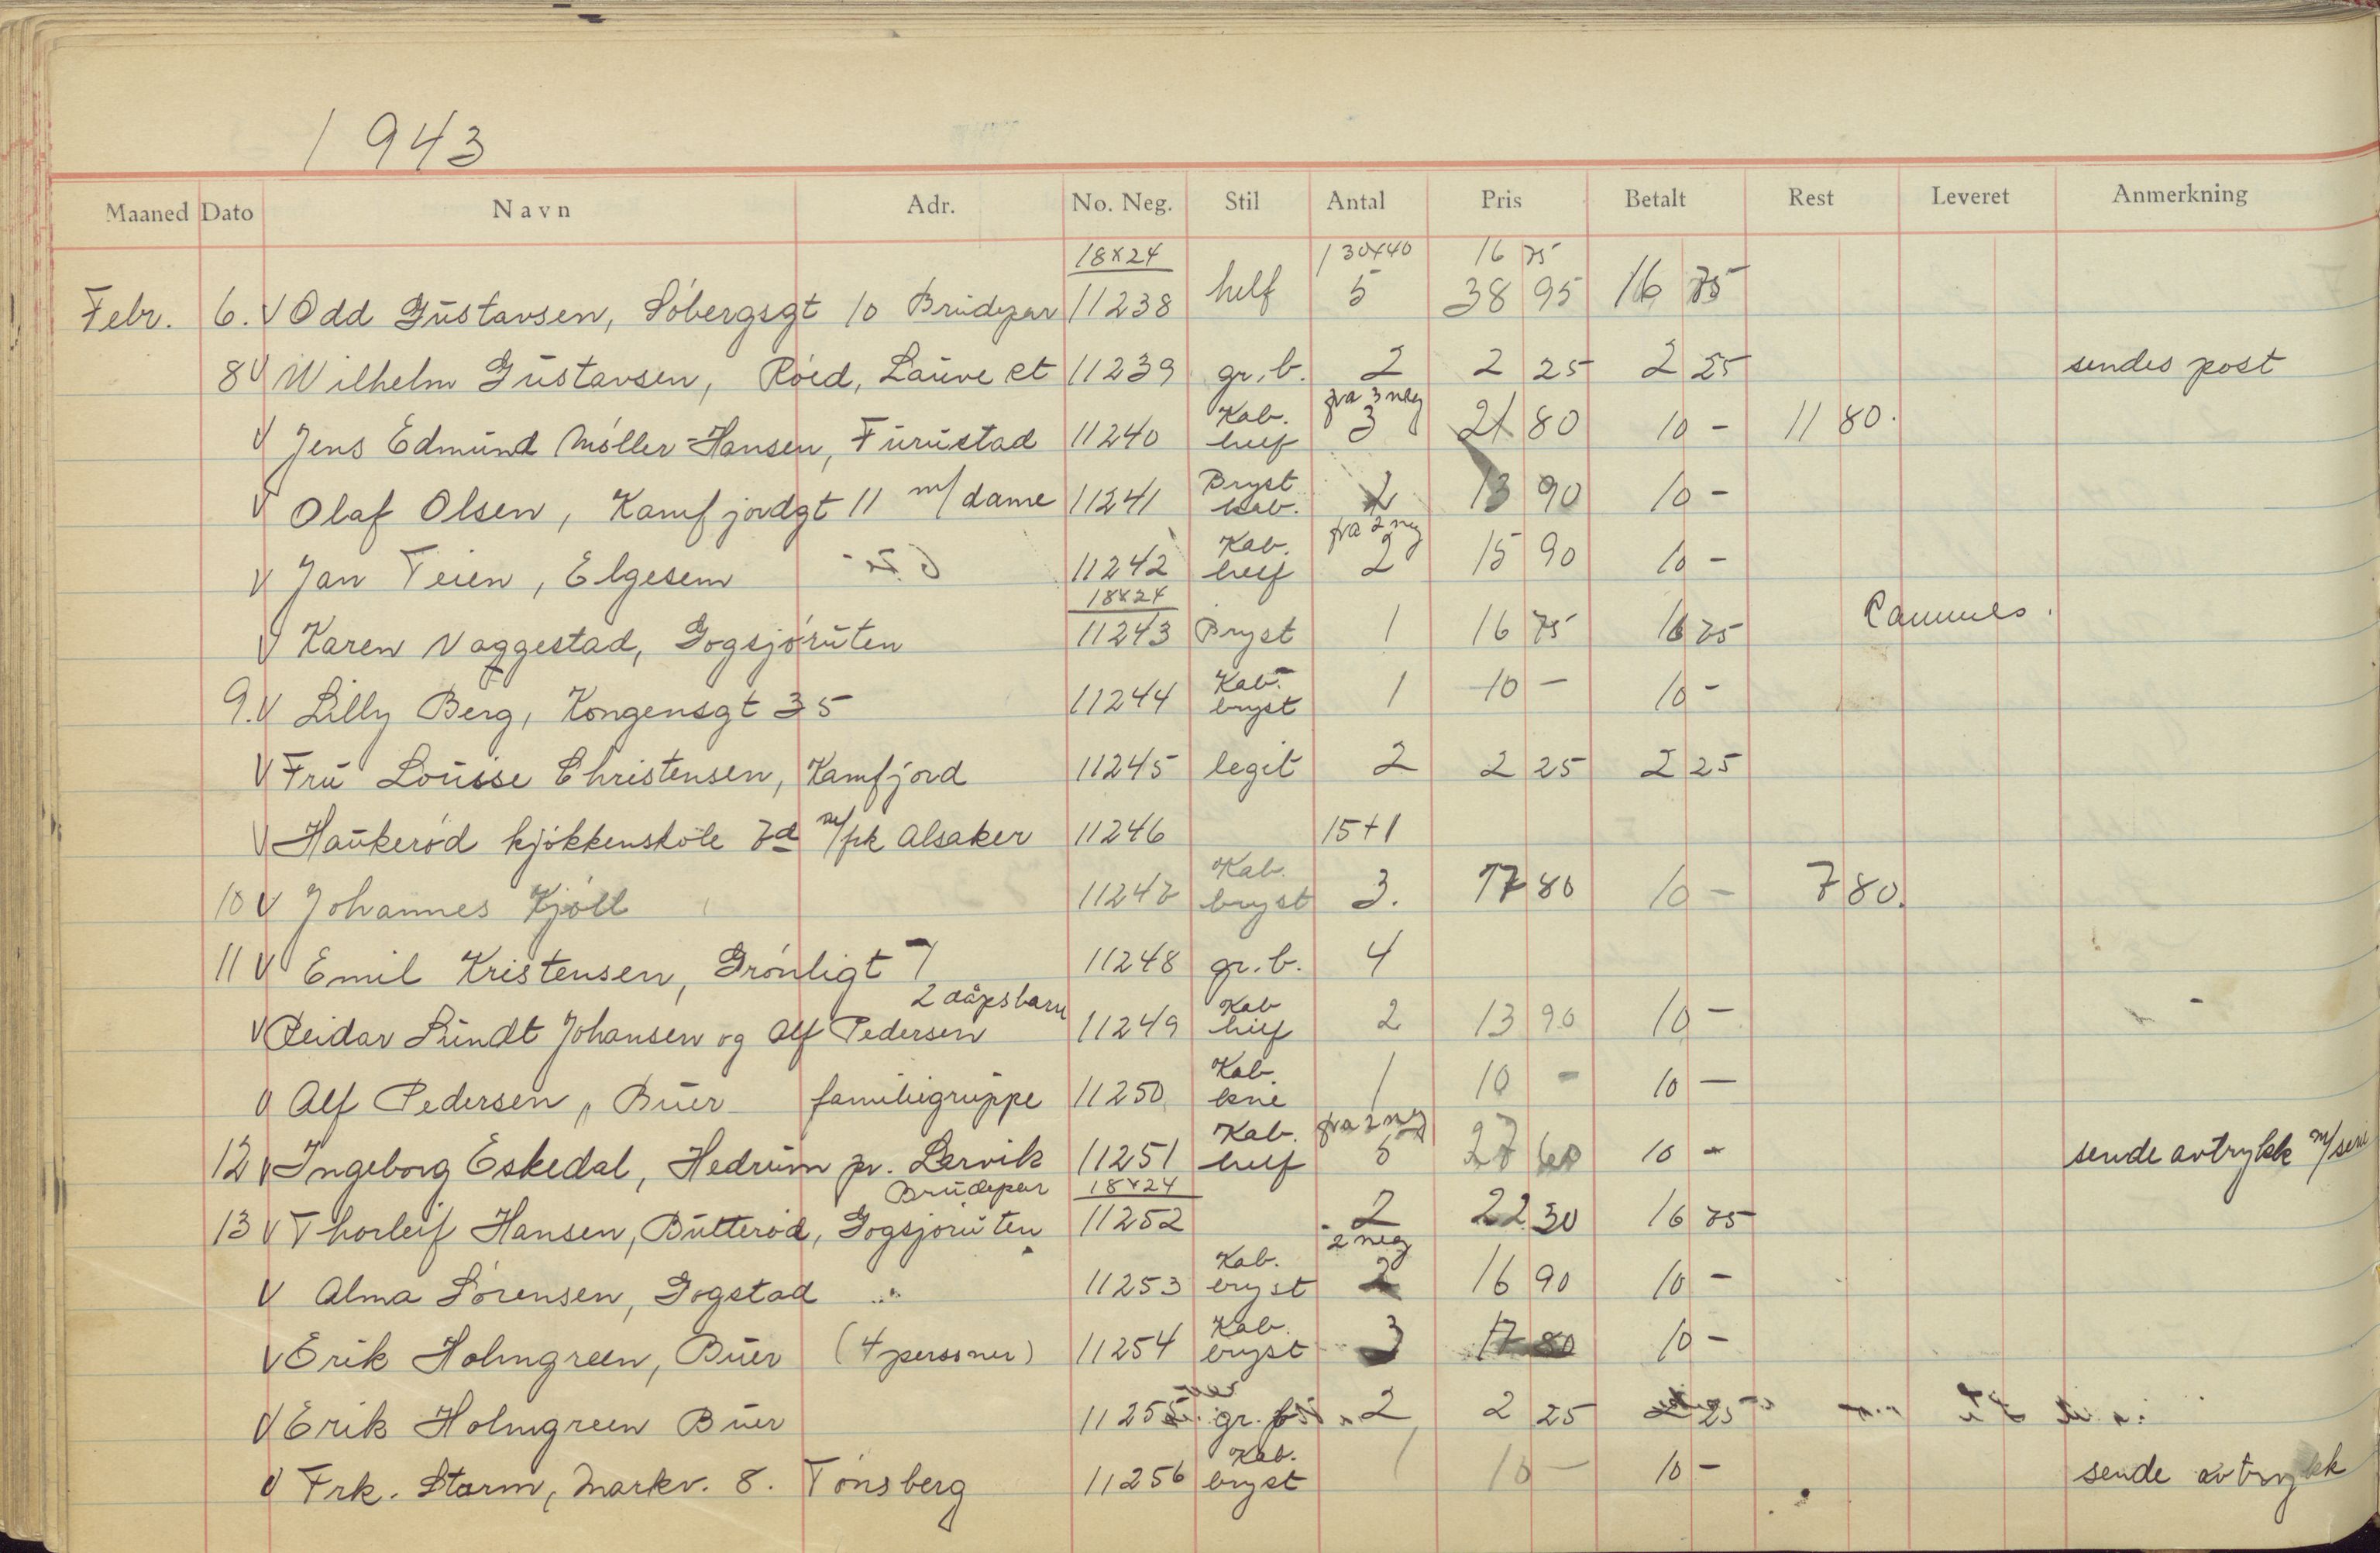 1943
Maaned Dato Navn Adr. No. Neg. Stil Antal Pris Betalt Rest Leveret Anmerkning
18x24 1 30x40 16 75
Febr. 6. V Odd Gustavsen, Söbergsgt 10 Brudepar 11238 helf 5 38 95 16 75
8 V Wilhelm Gustavsen, Röed, Lauve et 11239 gr. b. 2 2 25 2 25 sendes post
Kab. fra 3 neg
V Jens Edmund Möller-Hansen, Furustad 11240 helf 3 21 80 10 - 11 80.
Bryst
V Olaf Olsen, Kamfjordgt 11 m/dame 11241 kab. 2 13 90 10 -
Kab. fra 2 neg
V Jan Teien, Elgesem 11242 helf 2 15 90 10 -
18x24
V Karen Vaggestad, Gogsjöruten 11243 Bryst 1 16 75 16 75
Kab.
9. V Lilly Berg, Kongensgt 35 11244 bryst 1 10 - 10 -
V Fru Louise Christensen, Kamfjord 11245 legit 2 2 25 2 25
V Haukeröd kjökkenskole 7d m/frk Alsaker 11246 15+1
Kab.
10 V Johannes Kjöll 11247 bryst 3. 17 80 10 - 7 80.
11 V Emil Kristensen, Grönligt 7 11248 gr. b. 4
2 dåpsbarn Kab
V Reidar Lundt Johansen og Alf Pedersen 11249 helf 2 13 90 10 -
Kab.
V Alf Pedersen, Buer familiegruppe 11250 kne 1 10 - 10 -
Kab. fra 2 neg
12 V Ingeborg Eskedal, Hedrum pr. Larvik 11251 helf 5 27 60 10 - sende avtrykk m/
Brudepar 18x24
13 V Thorleif Hansen, Butteröd, Gogsjöruten 11252 2 22 30 16 75
Kab. 2 neg
V Alma Sörensen, Gogstad 11253 bryst 2 16 90 10 -
Kab.
V Erik Holmgreen, Buer (4 personer) 11254 bryst 3 17 80 10 -
V Erik Holmgreen Buer 11255 gr. 2 2 25 2 25
Kab.
V Frk. Storm, Markv. 8. Tönsberg 11256 bryst 1 10 - 10 - sende avtrykk